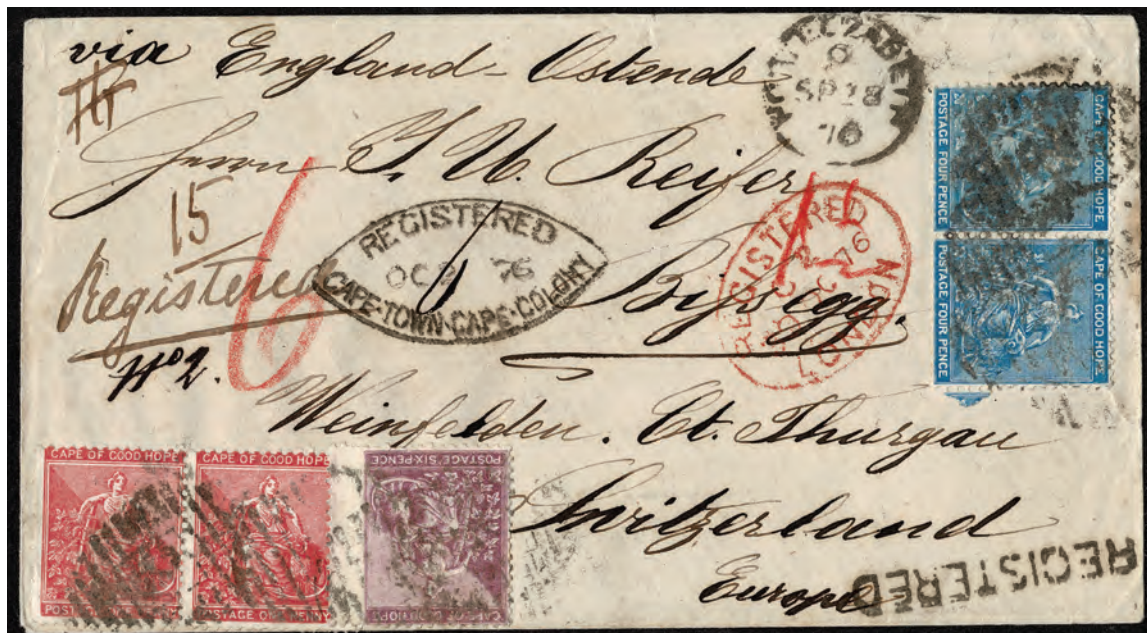 via England - Ostende
PORT ELIZABETH
SP 28
76
Herrn J. U. Reifer
15
Registered
No 2.
6
REGISTERED
OC 2 76
CAPE·TOWN·CAPE·COLONY
6
REGISTERED
LONDON
76
Bissegg.
Weinfelden. Ct. Thurgau
Switzerland
Europe
REGISTERED
CAPE OF GOOD HOPE
POSTAGE FOUR PENCE
CAPE OF GOOD HOPE
POSTAGE FOUR PENCE
CAPE OF GOOD HOPE
POSTAGE ONE PENNY
CAPE OF GOOD HOPE
POSTAGE ONE PENNY
POSTAGE SIX PENCE
CAPE OF GOOD HOPE